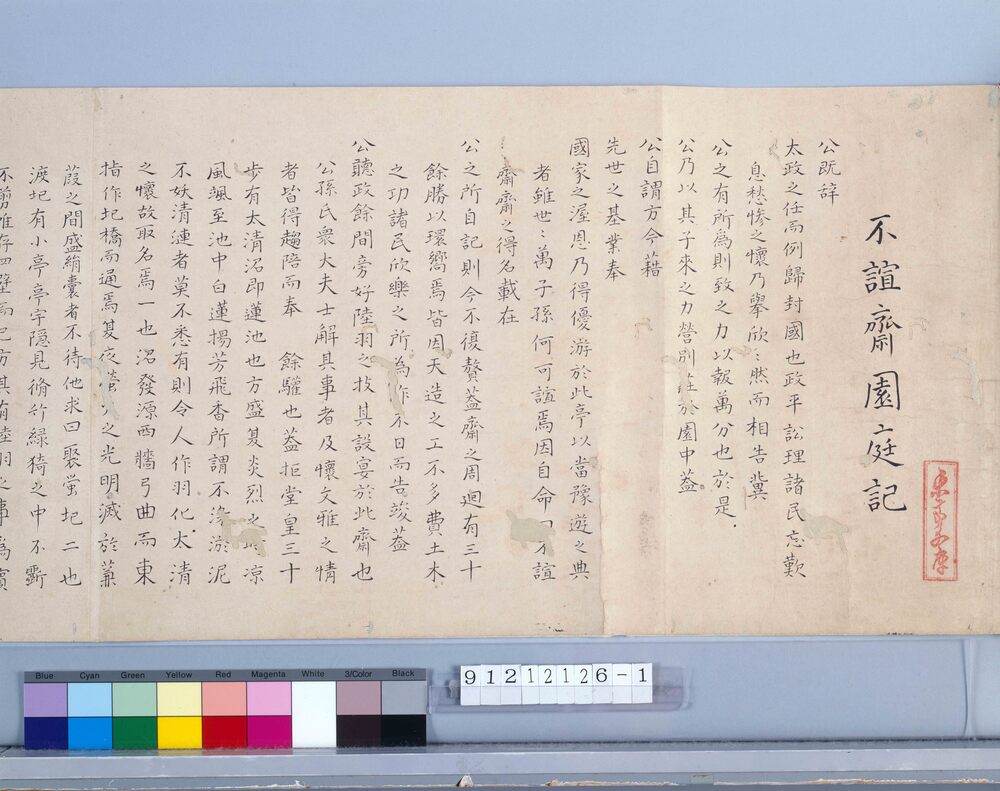 不諠齋園庭記
公既辞
大政之任而例歸封國也政平訟理諸民忘歎
息愁惨之懷乃擧欣〻然而相告冀
公之有所為則致之力以報萬分也於是
公乃以其子來之力營別荘於園中蓋
公自謂方今藉
先世之基業奉
國家之渥恩乃得優游於此亭以當豫遊之典
者雖世〻萬子孫何可諠焉因自命曰不諠
齋齋之得名載在
公之所自記則今不復贅蓋齋之周廻有三十
餘勝以環嚮焉皆因天造之工不多費土木
之功諸民欣樂之所為作不日而告竣蓋
公聽政餘間旁好陸羽之技其設宴於此齋也
公孫氏衆大夫士解其事者及懷文雅之情
者皆得趨陪而奉 餘驩也蓋拒堂皇三十
歩有太清沼即蓮池也方盛夏炎烈之 凉
風颯至池中白蓮揚芳飛香所謂不 淤泥
不妖清漣者莫不悉有則令人作羽化太清
之懷故取名焉一也沼發源西牆弓曲而東
指作圯橋而通焉夏夜螢火之光明滅於蒹
葭之間盛絹囊者不待他求曰聚螢圯二也
渡圯有小亭亭宇隠見脩竹緑猗之中不斲
不剪惟存四壁而已方其有陸羽之事為賓
Blue
Cyan
Green
Yellow
Red
Magenta
White
3/Color
Black
91212126-1